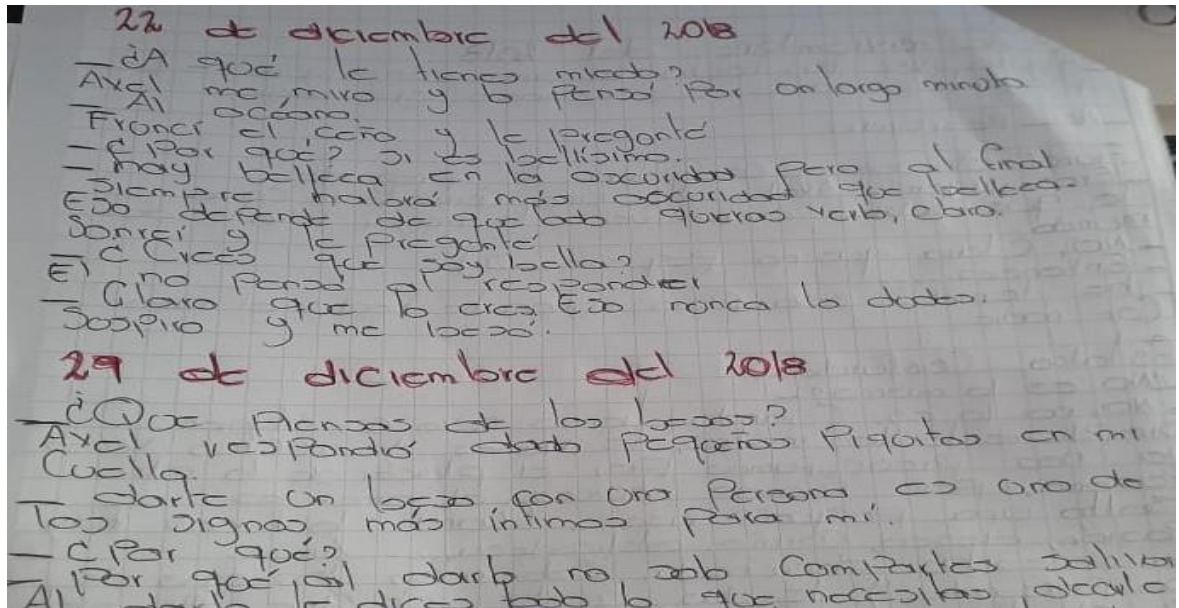 22 de diciembre del 2018
— ¿A qué le tienes miedo?
Axel me miro y lo pensó por un largo minuto.
— Al océano.
Fruncí el ceño y le pregunté
— ¿Por qué? si es bellísimo.
— hay belleza en la oscuridad pero al final
siempre habrá más oscuridad que belleza.
Eso depende de que lado quieras verlo, claro.
Sonreí y le pregunté
— ¿Crees que soy bella?
El no pensó al responder
— Claro que lo eres. Eso nunca lo dudes.
Suspiro y me besó.
29 de diciembre del 2018
— ¿Que piensas de los besos?
Axel respondió dado pequeños piquitos en mi
Cuello.
— darte un beso con una persona es uno de
los signos más íntimos para mí.
— ¿Por qué?
— Por qué al darlo no solo compartes saliva
Al le dices todo lo que necesitas